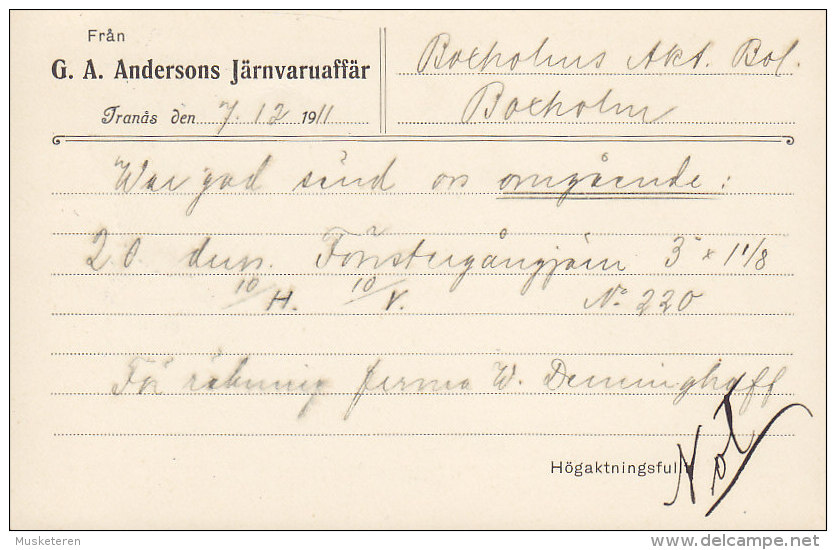 Från
G. A. Andersons Järnvaruaffär
Tranås den 7. 12 1911
Boxholms Akt. Bol.
Boxholm
War god sänd oss omgående:
20 dus. Fönstergångjärn 3" x 1 1/8
10/H. 10/V. No 220
För räkning firma W. Denninghoff
Högaktningsfullt
Not
Musketeren
delcampe.net